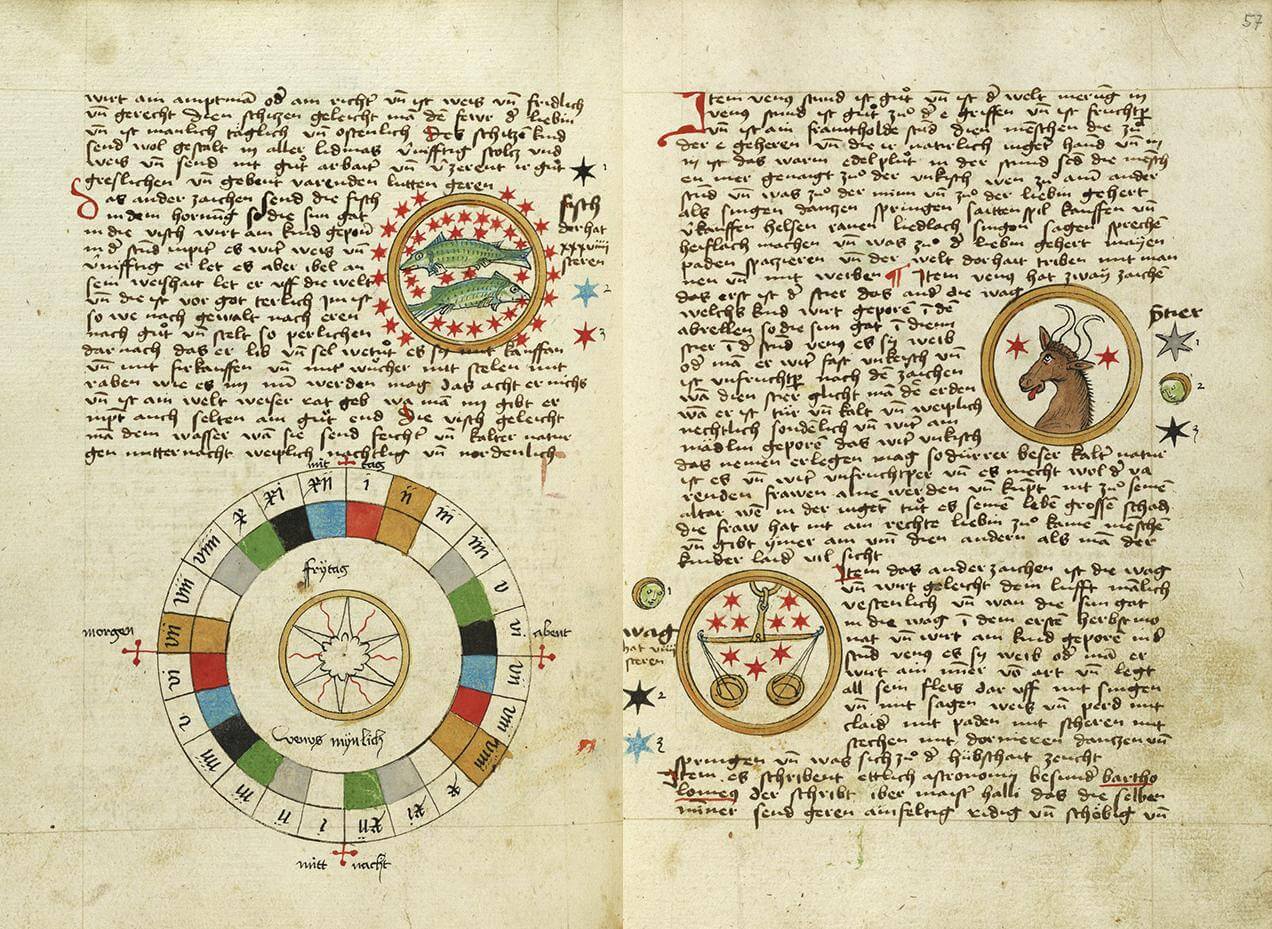 wirt ain amptmā od̄ am richt vn̄ ist weis vn̄ fridlich
vn̄ gerecht dien schitzen geleicht mā de fewr d̄ liebin
vn̄ ist manlich täglich vn̄ östenlich Des schitzē kind
send wol gestalt in aller lidmas v̄nifftig stoltz vnd
weis vn̄ send mit gūt arbait vn̄ v̄zerent ir gūt
greslichen vn̄ gebent varenden lutten geren
Das ander zaichen send die fisch
in dem hornūg so die sun gat
in die visch wirt am kind geporn
in d̄ stūd iupit es wirt weis vn̄
v̄nifftig er let es aber ibel an
sein weishait let er vff die welt
vn̄ die ist vor got terlich im ist
so we nach gewalt nach eren
nach gūt vn̄ stelt so perlichen
dar nach das er lib vn̄ sel wetūt es sy mit kauffen
vn̄ mit firkauffen vn̄ mit wūcher mit stelen mit
raben wie es im nū werden mag das acht er nichs
vn̄ ist am welt weiser rat geb wa mā im gibt er
nīpt auch selten am gūt end Die visch geleicht
mā dem wasser wā sie send feicht vn̄ kalter natur
gen mitternacht weiplich nachtlig vn̄ nordenlich
1
fisch
der hat
xxxviiii
steren
2
3
mit tag
xii i ii iii iiii v vi vii viii viiii x xi xii i ii iii iiii v vi vii viii viiii x xi
frÿtag
morgen
abent
venus mynlich
mitt nacht
57
Item venus stund ist gūt vn̄ ist d̄ welt merūg in
venus stund ist gūt zū d̄ e griffen vn̄ ist fruchtp̄
vn̄ ist ain fraintholde stūd dien meschen die zū
der e geheren vn̄ die ir natirlich inget hand vn̄ in
in ist das warm edel plūt in der stund send die mesch
en mer genaigt zū der vnkisch wen zū ainē ander
stūd vn̄ was zū der minn vn̄ zū der liebin gehert
als singen dantzen springen saittenspil kauffen vn̄
v̄kauffen helsen raien liedlach singen sagen spreche
heiflach machen vn̄ was zū d̄ liebin gehert mayen
paden spatzieren vn̄ der welt dorhait triben mit man
nen vn̄ mit weiben Item venus hat zwaÿ zaichē
das erst ist d̄ stier das and̄ die wag
welchs kind wirt geporē ī dē
abrellen so die sun gat ī diem
stier ī d̄ stūd venus es sÿ weib
od̄ mā er wirt fast vnkisch vn̄
ist vnfruchtp̄ nach dē zaichen
wā dien stier glicht mā dē erden
wā er ist tūr vn̄ kalt vn̄ weiplich
nechtlich sondelich vn̄ wirt am
mädlin geporē das wirt vnkisch
das niemen erlegen mag so dūrrer beser kalt natur
ist es vn̄ wirt vnfruchtper vn̄ es mecht wol d̄ va
renden frawen aine werden vn̄ kūpt nit zū seinē
altar wē in der inget tūt es seinē lebē grossē schad
die fraw hat nit am rechte liebin zū kaine meschē
vn̄ gibt ymer am vm̄ dien andern als mā der
kinder laider vil sicht
stier
1
2
3
Item das ander zaichen ist die wag
vn̄ wirt geleicht dem lufft mālich
vestenlich vn̄ wan die sun gat
in die wag ī dem erste herbstmo
nat vn̄ wirt am kind geporē in d̄
stūd venus es sÿ weib od̄ mā er
wirt ain mīer vō art vn̄ legt
all sein fleis dar vff mit singen
vn̄ mit sagen weis vn̄ perd mit
claid̄ mit paden mit scheren mit
stechen mit dornieren dantzen vn̄
springen vn̄ was sich zū d̄ hūbschait zeucht
1
wag
hat viiii
steren
2
3
Item es schribent ettlich astronomi besund̄ bartho
lomeus der schribt iber maist̄ halli das die selben
mīner send geren ainfeltig ridig vn̄ schöbig vn̄